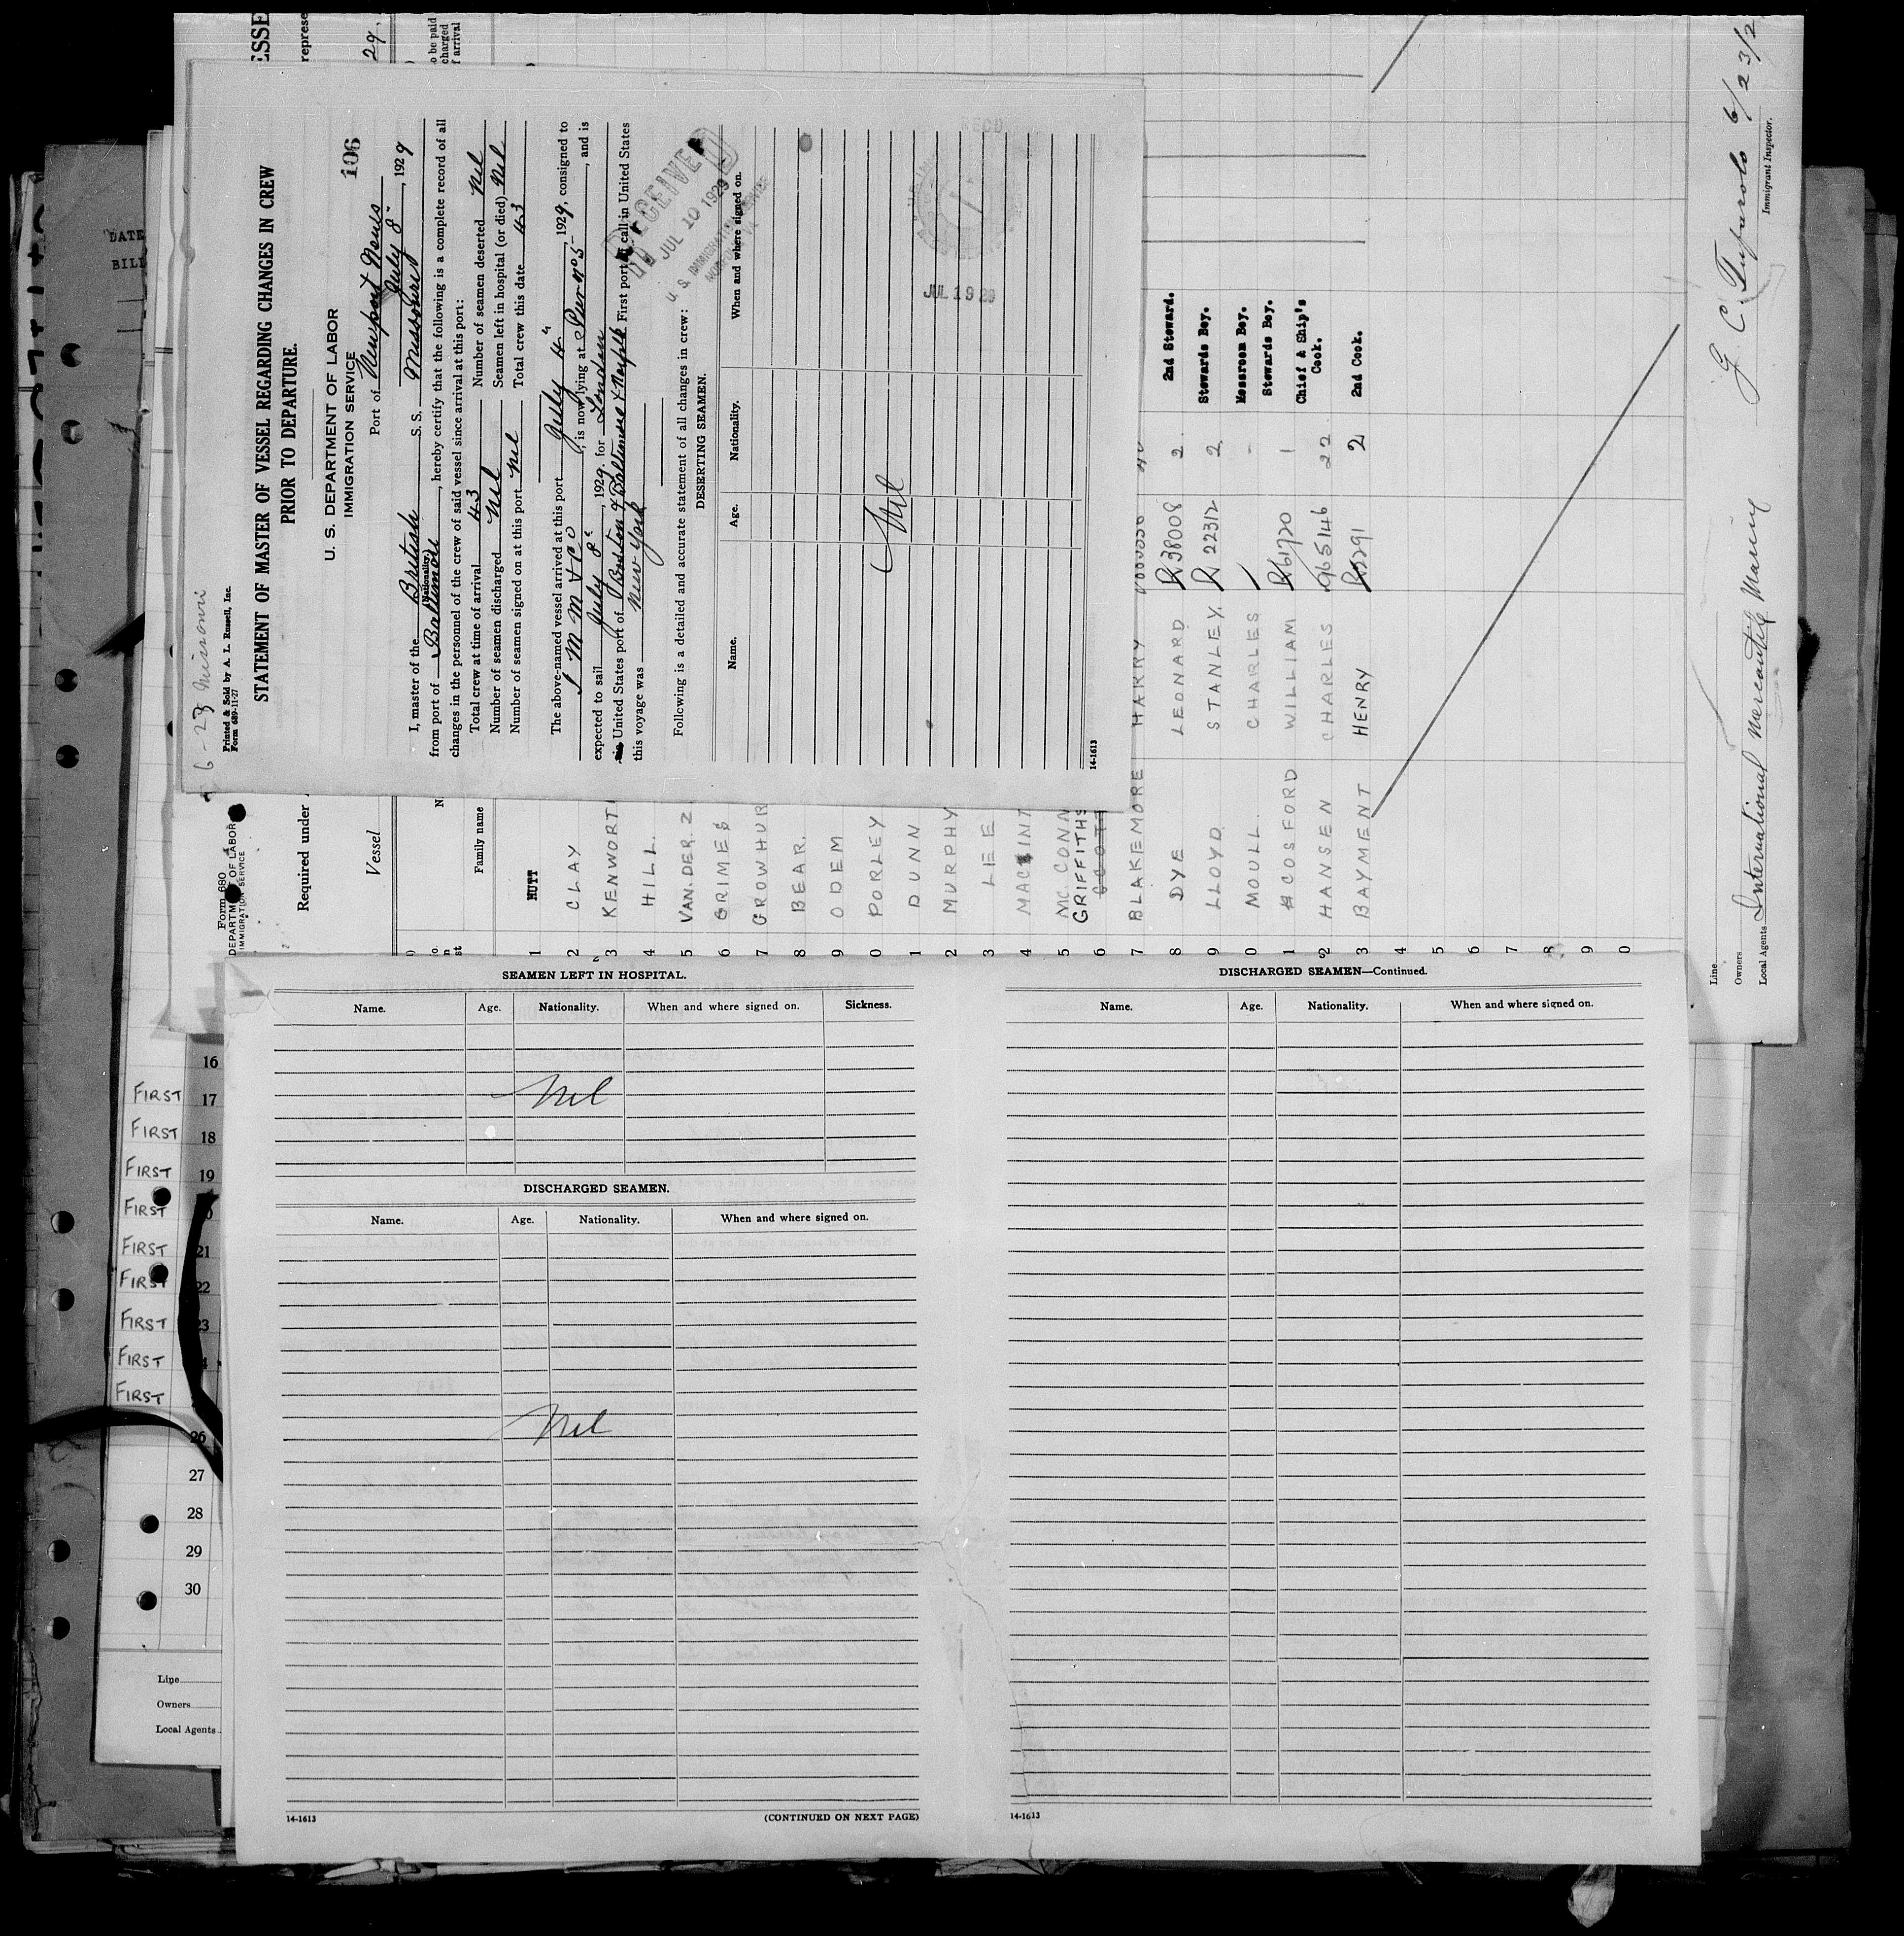 6-23 Missouri
Printed & Sold by A. L. Russell, Inc.
Form 689-11-27
STATEMENT OF MASTER OF VESSEL REGARDING CHANGES IN CREW
PRIOR TO DEPARTURE.
106
U. S. DEPARTMENT OF LABOR
IMMIGRATION SERVICE
Port of Newport News
July 8, 1929
I, master of the British S. S. Missouri
(Nationality)
from port of Baltimore, hereby certify that the following is a complete record of all
changes in the personnel of the crew of said vessel since arrival at this port:
Total crew at time of arrival 43 Number of seamen deserted Nil
Number of seamen discharged Nil Seamen left in hospital (or died) Nil
Number of seamen signed on at this port Nil Total crew this date 43
The above-named vessel arrived at this port July 4 1929, consigned to
I M M & Co, is now lying at Pier No 5, and is
expected to sail July 8, 1929 for London
United States port of Boston & Baltimore & Norfolk First port of call in United States
this voyage was New York
Following is a detailed and accurate statement of all changes in crew:
DESERTING SEAMEN.
Name. Age. Nationality. When and where signed on.
Nil
14-1613
RECEIVED
JUL 10 1929
U. S. IMMIGRATION SERVICE
JUL 19 29
ESSE
represe
29.
o be paid
charged
f arrival
Form 680
DEPARTMENT OF LABOR
IMMIGRATION SERVICE
Required under
Vessel
Family name
1 HUTT
2 CLAY
3 KENWORT
4 HILL.
5 VAN. DER. Z
6 GRIMES
7 CROWHUR
8 BEAR.
9 ODEM
0 PORLEY
1 DUNN
2 MURPHY
3 LEE
4 MACKINT
5 MC. CONN
GRIFFITHS
6 SCOTT
7 BLAKEMORE HARRY
8 DYE LEONARD R38008 2 2nd Steward.
9 LLOYD STANLEY. R 22312 2 Stewards Boy.
0 MOULL CHARLES / - Messroom Boy.
Stewards Boy.
1 COSFORD WILLIAM R61720 1 Chief & Ship's
Cook.
2 HANSEN CHARLES 965146 22
3 BAYMENT HENRY R5291 2 2nd Cook.
4
5
6
7
8
9
0
Line
Owners
Local Agents International Mercantile Marine
6/23/2
Immigrant Inspector.
DATE
BILL
SEAMEN LEFT IN HOSPITAL.
Name. Age. Nationality. When and where signed on. Sickness.
Nil
DISCHARGED SEAMEN.
Name. Age. Nationality. When and where signed on.
Nil
14-1613 (CONTINUED ON NEXT PAGE)
DISCHARGED SEAMEN—Continued.
Name. Age. Nationality. When and where signed on.
14-1613
16
FIRST 17
FIRST 18
FIRST 19
FIRST
FIRST 21
FIRST 22
FIRST 23
FIRST
FIRST
26
27
28
29
30
Line
Owners
Local Agents